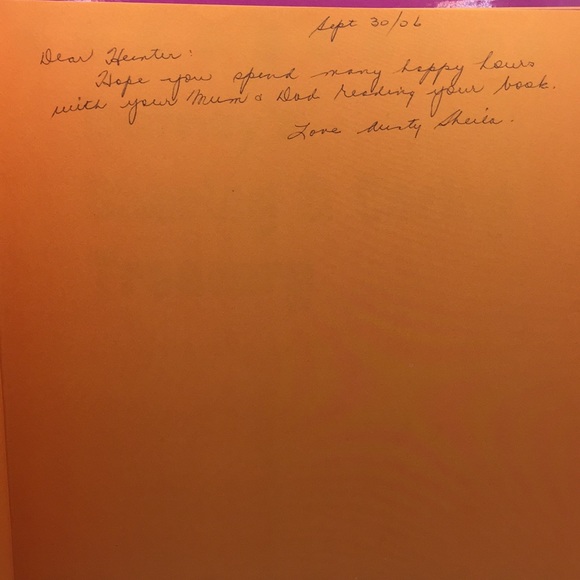 Sept 30/06
Dear Hunter:
Hope you spend many happy hours
with your Mum & Dad reading your book.
Love Aunty Sheila.